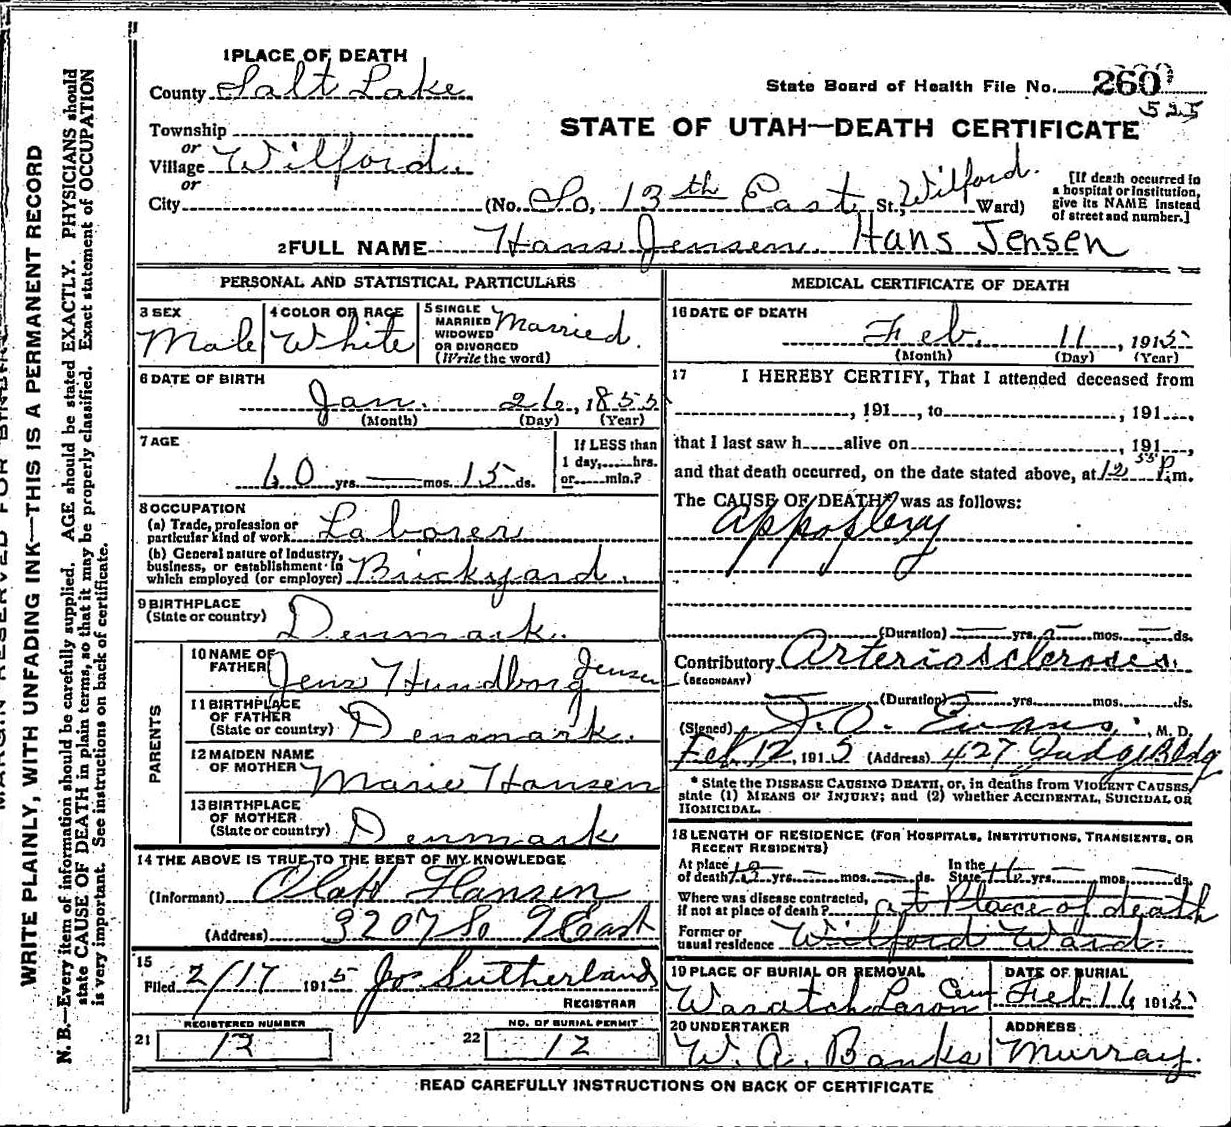 MARGIN RESERVED FOR BINDING
WRITE PLAINLY, WITH UNFADING INK—THIS IS A PERMANENT RECORD
N. B.—Every item of information should be carefully supplied. AGE should be stated EXACTLY. PHYSICIANS should
state CAUSE OF DEATH in plain terms, so that it may be properly classified. Exact statement of OCCUPATION
is very important. See instructions on back of certificate.
1 PLACE OF DEATH
County Salt Lake
State Board of Health File No. 260
525
STATE OF UTAH—DEATH CERTIFICATE
Township
or
Village Wilford.
or
City (No. So, 13th East St., Wilford. Ward)
[If death occurred in
a hospital or institution,
give its NAME instead
of street and number.]
2 FULL NAME Hans Jensen. Hans Jensen
PERSONAL AND STATISTICAL PARTICULARS
3 SEX Male
4 COLOR OR RACE White
5 SINGLE
MARRIED
WIDOWED
OR DIVORCED
(Write the word) Married.
6 DATE OF BIRTH
Jan. 26, 1855
(Month) (Day) (Year)
7 AGE
60 yrs. — mos. 15 ds.
If LESS than
1 day, hrs.
or min.?
8 OCCUPATION
(a) Trade, profession or
particular kind of work Laborer
(b) General nature of Industry,
business, or establishment in
which employed (or employer) Brickyard.
9 BIRTHPLACE
(State or country) Denmark.
PARENTS
10 NAME OF
FATHER Jens Hundborg Jensen
11 BIRTHPLACE
OF FATHER
(State or country) Denmark.
12 MAIDEN NAME
OF MOTHER Marie Hansen
13 BIRTHPLACE
OF MOTHER
(State or country) Denmark
14 THE ABOVE IS TRUE TO THE BEST OF MY KNOWLEDGE
(Informant) Olaff Hansen
(Address) 3207 So 9 East
15
Filed 2/17 1915 Jos Sutherland
REGISTRAR
21 REGISTERED NUMBER 12
22 NO. OF BURIAL PERMIT 12
MEDICAL CERTIFICATE OF DEATH
16 DATE OF DEATH
Feb. 11, 1915
(Month) (Day) (Year)
17 I HEREBY CERTIFY, That I attended deceased from
, 191 , to , 191 ,
that I last saw h alive on , 191 ,
and that death occurred, on the date stated above, at 12 55 P.m.
The CAUSE OF DEATH* was as follows:
Appoplexy
(Duration) — yrs. — mos. — ds.
Contributory Arteriosclerosis.
(SECONDARY)
(Duration) yrs. mos. ds.
(Signed) J. O. Evans, M. D.
Feb 12, 1915 (Address) 427 Judge Bldg
* State the DISEASE CAUSING DEATH, or, in deaths from VIOLENT CAUSES,
state (1) MEANS OF INJURY; and (2) whether ACCIDENTAL, SUICIDAL OR
HOMICIDAL.
18 LENGTH OF RESIDENCE (FOR HOSPITALS, INSTITUTIONS, TRANSIENTS, OR
RECENT RESIDENTS)
At place
of death 12 yrs. — mos. — ds. In the
State 16 yrs. — mos. — ds.
Where was disease contracted,
if not at place of death? at Place of death
Former or
usual residence Wilford Ward.
19 PLACE OF BURIAL OR REMOVAL
Wasatch Lawn Cem
DATE OF BURIAL
Feb 16 1915
20 UNDERTAKER
W. A. Banks
ADDRESS
Murray.
READ CAREFULLY INSTRUCTIONS ON BACK OF CERTIFICATE